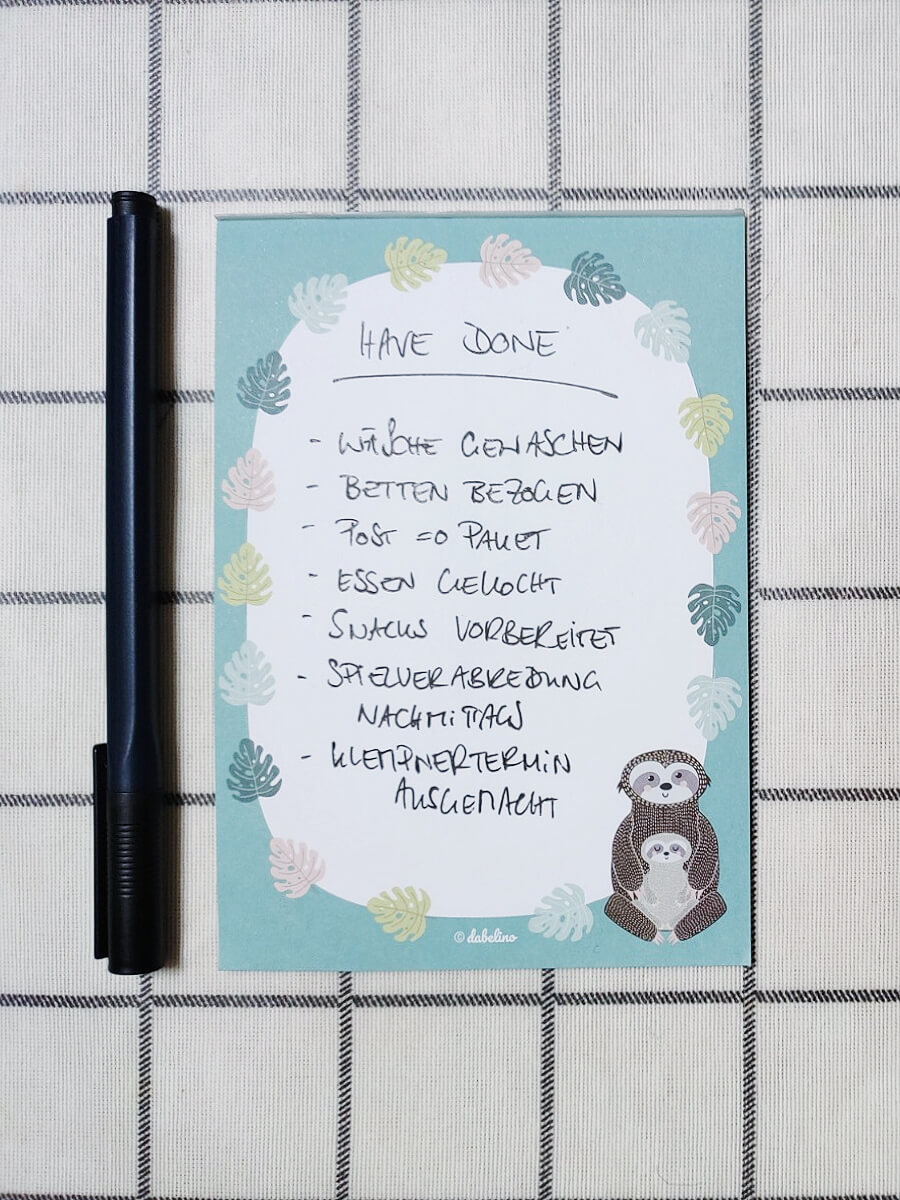 HAVE DONE
- WÄSCHE GEWASCHEN
- BETTEN BEZOGEN
- POST => PAKET
- ESSEN GEKOCHT
- SNACKS VORBEREITET
- SPIELVERABREDUNG
NACHMITTAGS
- KLEMPNERTERMIN
AUSGEMACHT
© dabelino